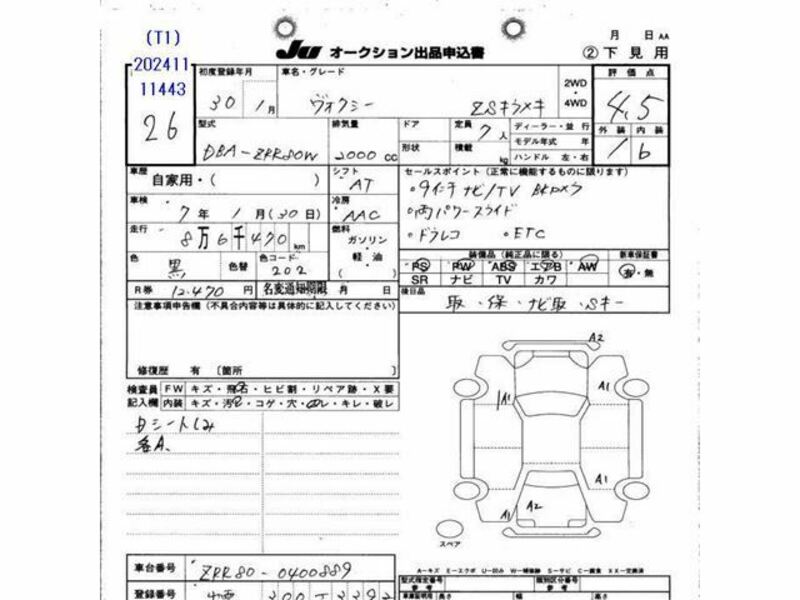 (T1)
202411
11443
26
JU オークション出品申込書
月 日 AA
② 下見用
初度登録年月
30 1月
車名・グレード
ヴォクシー ZSキラメキ
2WD
・
4WD
評価点
4.5
外装 内装
1 6
型式
DBA-ZRR80W
排気量
2000 cc
ドア
形状
定員 7人
積載 kg
ディーラー・並行
モデル年式 年
ハンドル 左・右
車歴
自家用・( )
シフト
AT
セールスポイント(正常に機能するものに限ります)
・9インチナビ/TV Bカメラ
・両パワースライド
・ドラレコ ・ETC
車検
7年 1月(30日)
冷房
AAC
走行
8万6千470 km
燃料
ガソリン
軽油
( )
色
黒
色替
色コード
202
装備品(純正品に限る)
新車保証書
PS PW ABS エアB AW
SR ナビ TV カワ
有・無
R券 12,470 円
名変通知期限 月 日
後日品
取・保・ナビ取・Sキー
注意事項申告欄(不具合内容等は具体的に記入してください)
修復歴 有 〔箇所 〕
検査員
記入欄
FW キズ・飛石・ヒビ割・リペア跡・X要
内装 キズ・汚レ・コゲ・穴・スレ・キレ・破レ
内シートしみ
各A、
A2
A1
A1
A1
A1
A2
スペア
A-キズ E-エクボ U-凹み W-補修跡 S-サビ C-腐食 XX-交換済
車台番号
ZRR80-0400889
型式指定番号
類別区分番号
登録番号
車庫証明用 長さ 幅 高さ